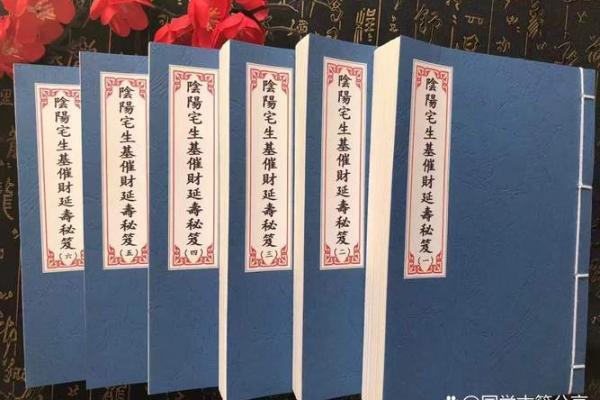 陰陽宅生基催財延壽秘笈(一)
陰陽宅生基催財延壽秘笈(二)
陰陽宅生基催財延壽秘笈(三)
陰陽宅生基催財延壽秘笈(四)
陰陽宅生基催財延壽秘笈(五)
陰陽宅生基催財延壽秘笈(六)